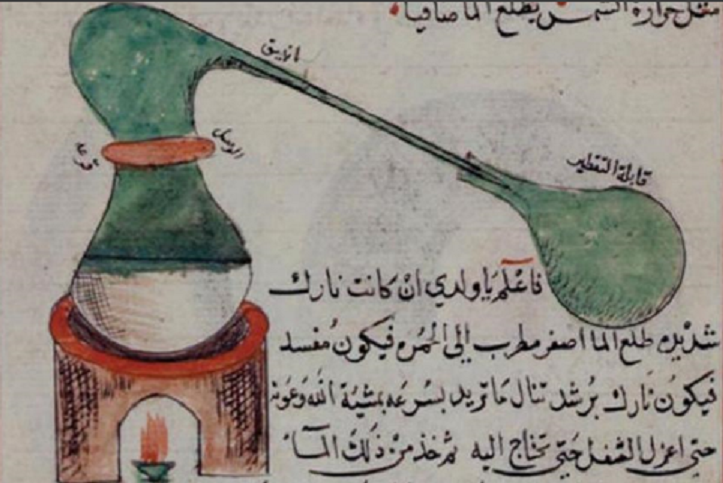 مثل حرارة الشمس يطلع الما صافيا
انبيق
الوصل
قرعة
قابلة التقطير
فاعلم يا ولدي ان كانت نارك
شديده طلع الما اصفر مطرب الى الحمره فيكون مفسد
فيكون نارك برشد تنال ما تريد بسرعه بمشية الله وعونه
حتى اعزل الثفل حتى تحتاج اليه ثم خذ من ذلك الماء